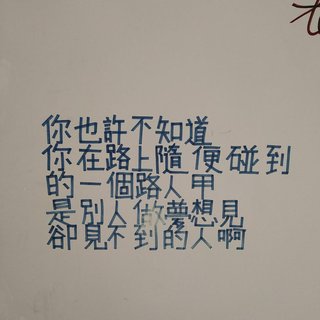 你也許不知道
你在路上隨便碰到
的一個路人甲
是別人做夢想見
卻見不到的人啊